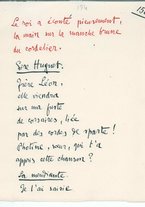 194
Le roi a écouté pieusement,
la main sur la manche brune
du cordelier.
Sire Huguet.
Frère Léon,
elle viendra
sur une fuste
de corsaires, liée
par des cordes de sparte !
Photine, qui t'a
appris cette chanson ?
La mendiante.
Je t'ai suivie